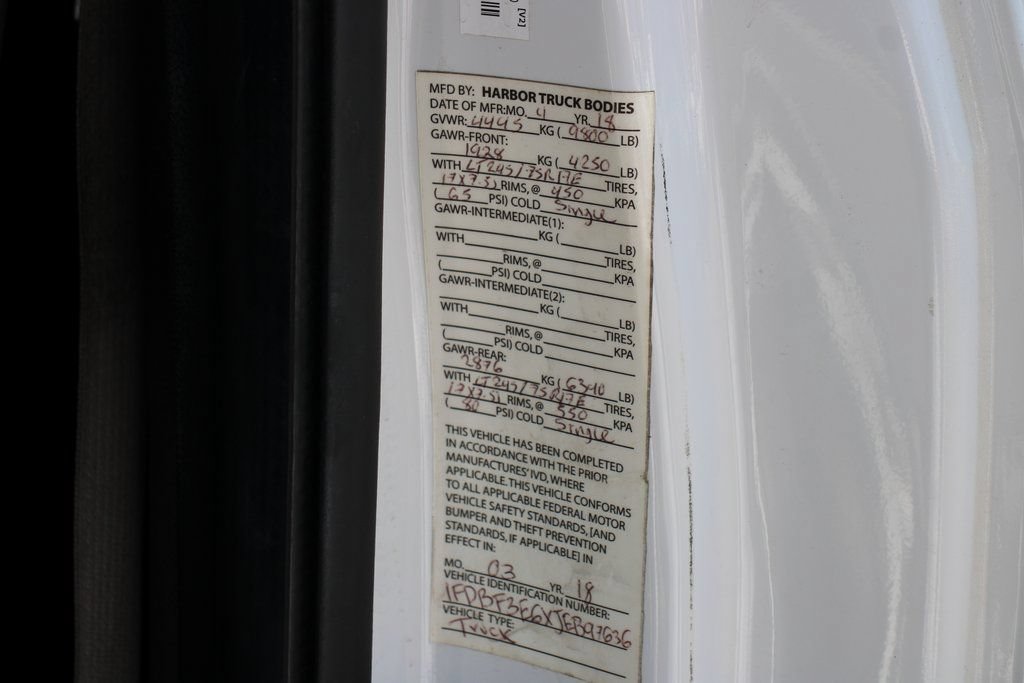 [V2]
MFD BY: HARBOR TRUCK BODIES
DATE OF MFR:MO. 4 YR. 18
GVWR: 4445 KG ( 9800 LB)
GAWR-FRONT:
1928 KG ( 4250 LB)
WITH LT245/75R17E TIRES,
17X7.5J RIMS, @ 450 KPA
( 65 PSI) COLD Single
GAWR-INTERMEDIATE(1):
KG ( LB)
WITH TIRES,
RIMS, @ KPA
( PSI) COLD
GAWR-INTERMEDIATE(2):
KG ( LB)
WITH TIRES,
RIMS, @ KPA
( PSI) COLD
GAWR-REAR:
2876 KG ( 6340 LB)
WITH LT245/75R17E TIRES,
17X7.5J RIMS, @ 550 KPA
( 80 PSI) COLD Single
THIS VEHICLE HAS BEEN COMPLETED
IN ACCORDANCE WITH THE PRIOR
MANUFACTURES' IVD, WHERE
APPLICABLE. THIS VEHICLE CONFORMS
TO ALL APPLICABLE FEDERAL MOTOR
VEHICLE SAFETY STANDARDS, [AND
BUMPER AND THEFT PREVENTION
STANDARDS, IF APPLICABLE] IN
EFFECT IN:
MO. 03 YR. 18
VEHICLE IDENTIFICATION NUMBER:
1FDBF3E6XJEB97636
VEHICLE TYPE:
Truck